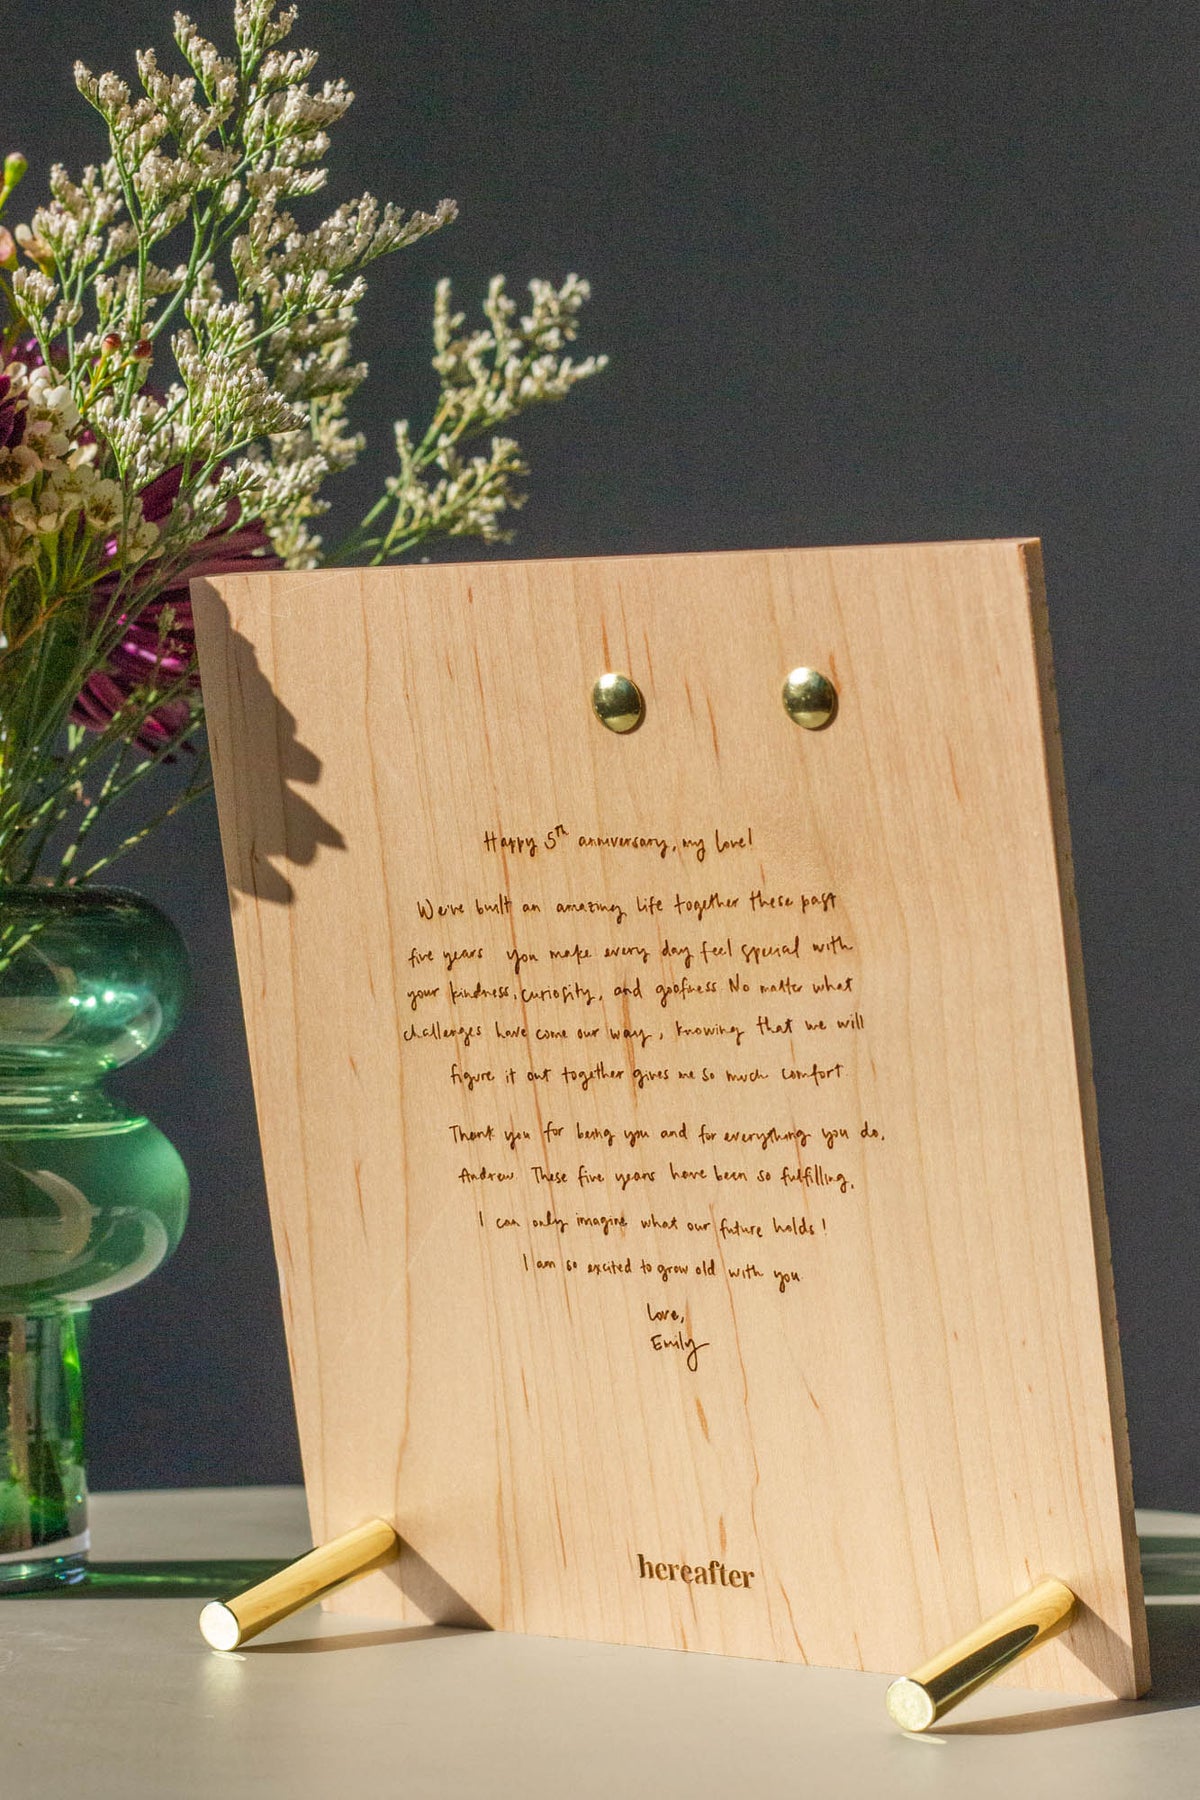 Happy 5th anniversary, my love!
We've built an amazing life together these past
five years you make every day feel special with
your kindness, curiosity, and goofness No matter what
challenges have come our way, knowing that we will
figure it out together gives me so much comfort.
Thank you for being you and for everything you do,
Andrew. These five years have been so fulfilling,
I can only imagine what our future holds!
I am so excited to grow old with you.
Love,
Emily
hereafter